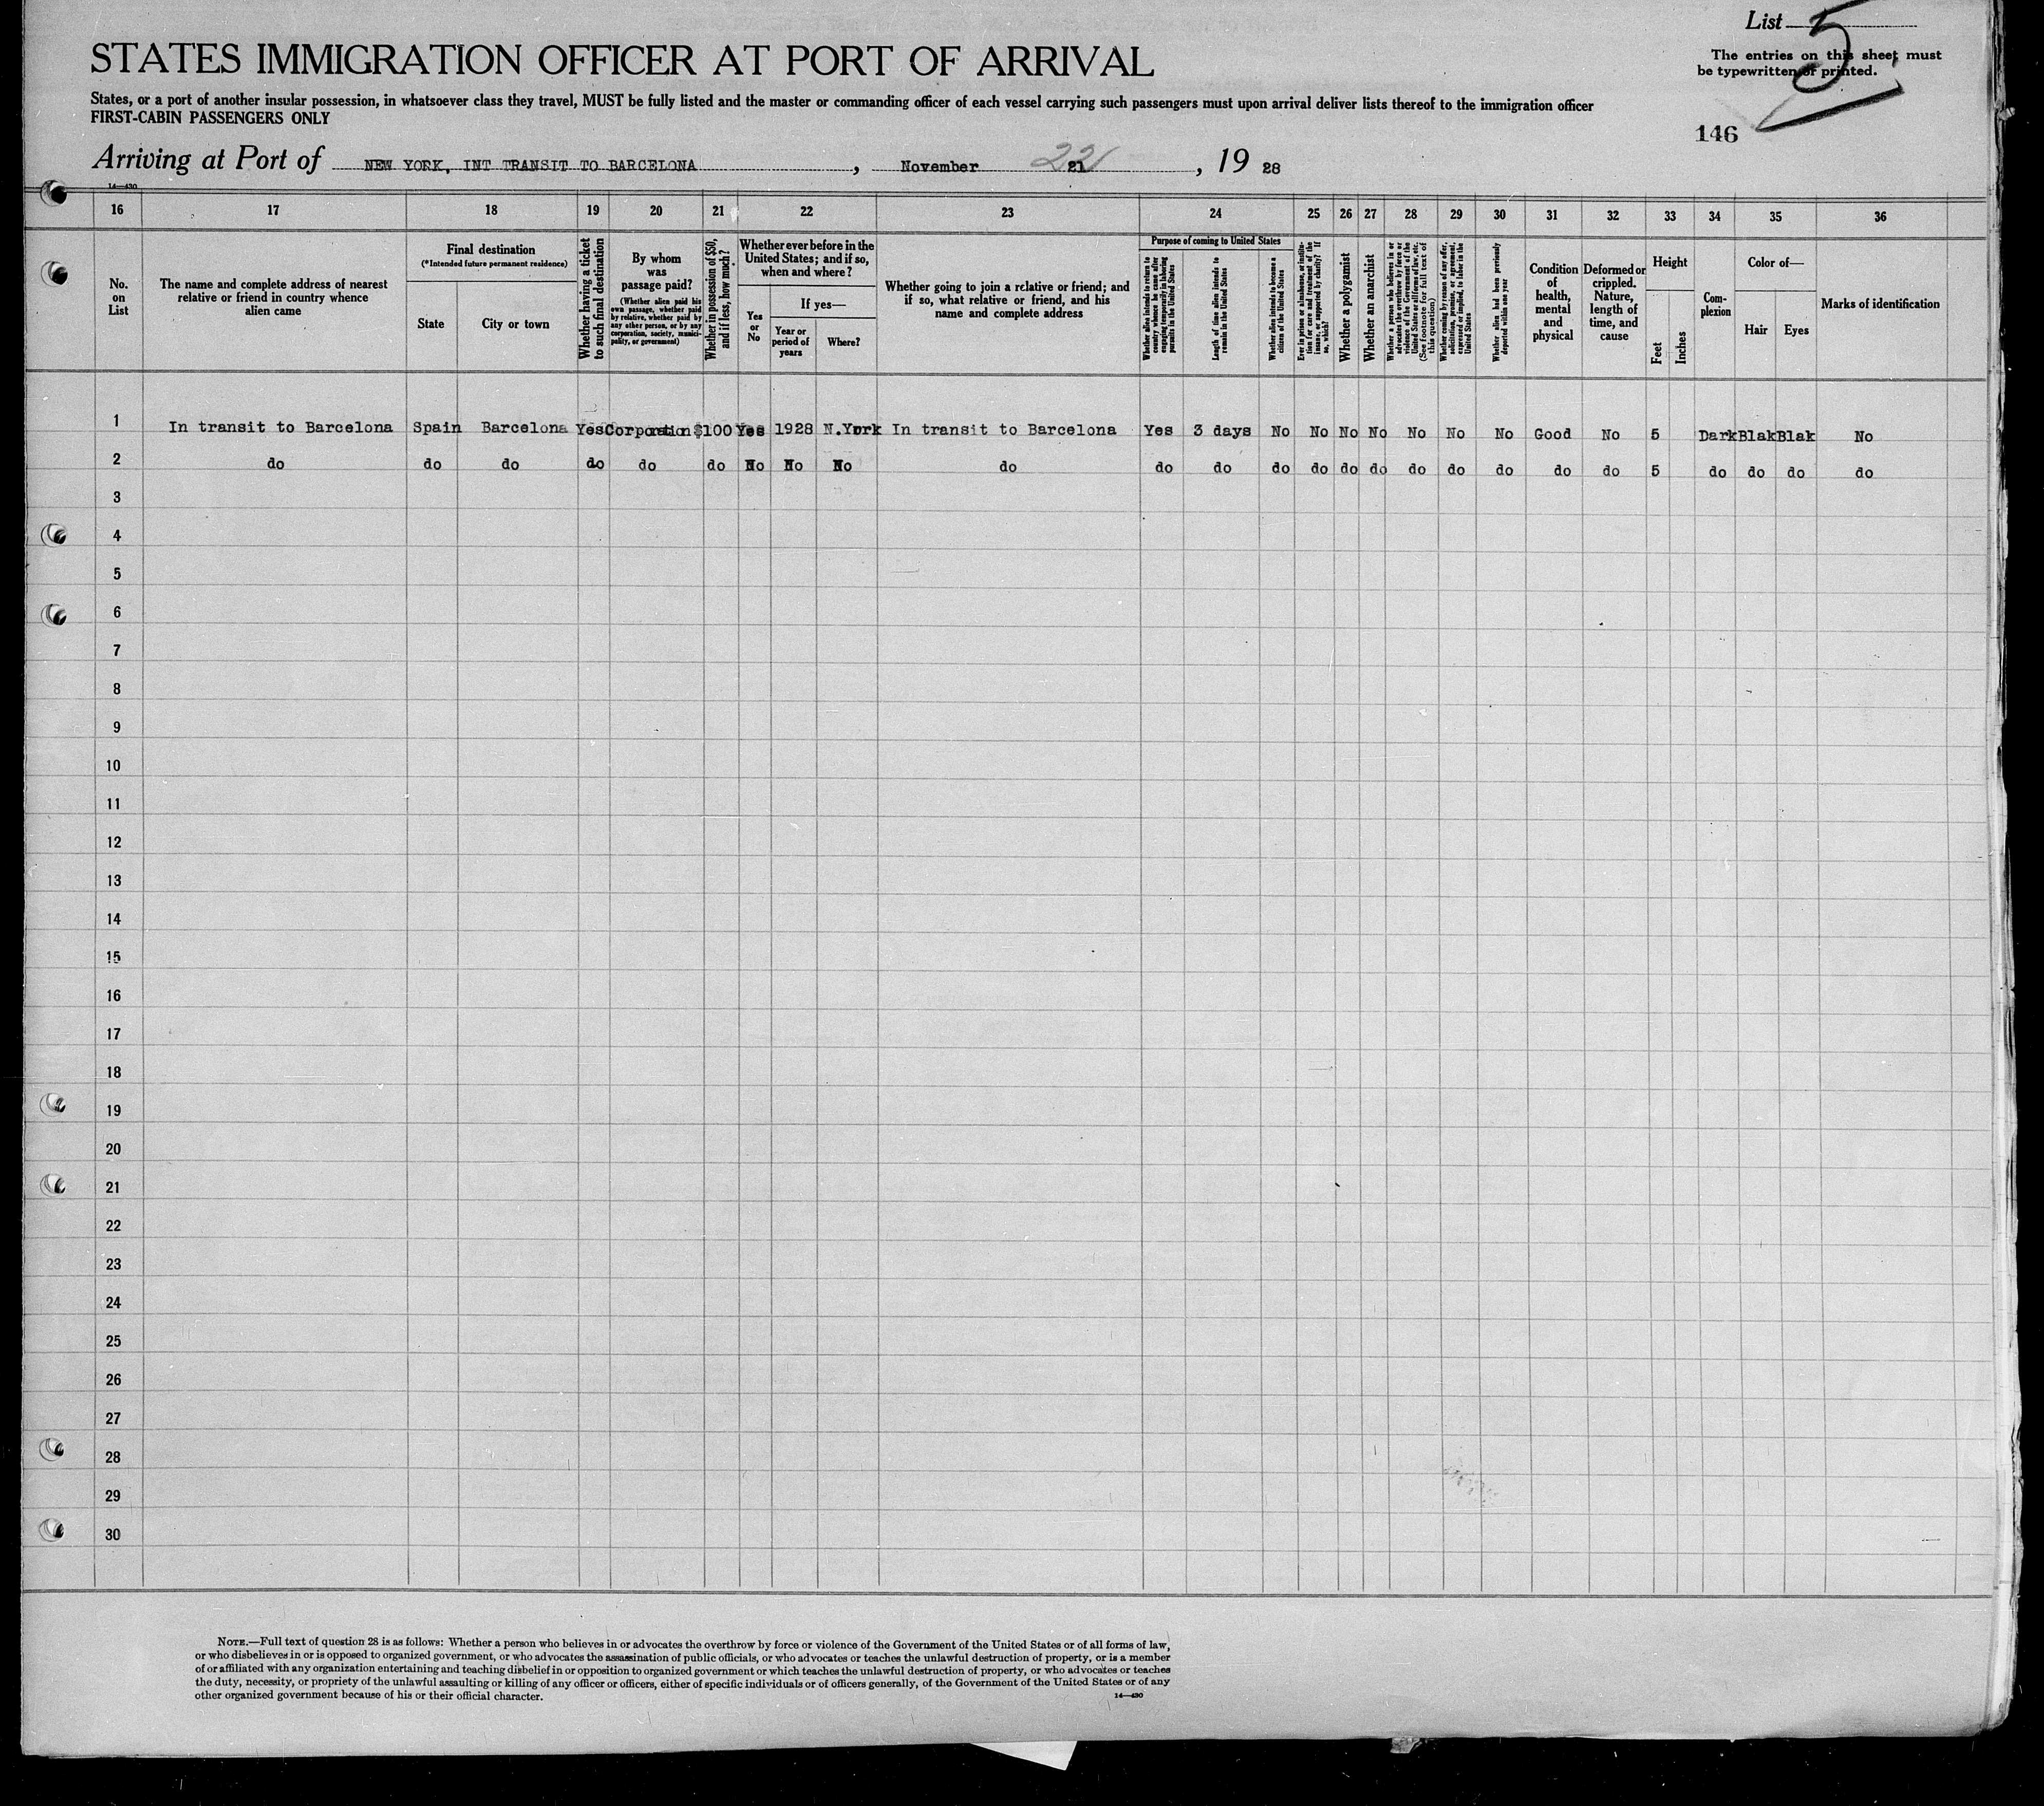 List 5
STATES IMMIGRATION OFFICER AT PORT OF ARRIVAL
The entries on this sheet must
be typewritten or printed.
States, or a port of another insular possession, in whatsoever class they travel, MUST be fully listed and the master or commanding officer of each vessel carrying such passengers must upon arrival deliver lists thereof to the immigration officer
FIRST-CABIN PASSENGERS ONLY
146
Arriving at Port of NEW YORK, INT TRANSIT TO BARCELONA, November 21 22, 19 28
14—430
16 17 18 19 20 21 22 23 24 25 26 27 28 29 30 31 32 33 34 35 36
No. on List
The name and complete address of nearest relative or friend in country whence alien came
Final destination
(*Intended future permanent residence)
State
City or town
Whether having a ticket to such final destination
By whom was passage paid?
(Whether alien paid his own passage, whether paid by relative, whether paid by any other person, or by any corporation, society, municipality, or government)
Whether in possession of $50, and if less, how much?
Whether ever before in the United States; and if so, when and where?
Yes or No
If yes—
Year or period of years
Where?
Whether going to join a relative or friend; and if so, what relative or friend, and his name and complete address
Purpose of coming to United States
Whether alien intends to return to country whence he came after engaging temporarily in laboring pursuits in the United States
Length of time alien intends to remain in the United States
Whether alien intends to become a citizen of the United States
Ever in prison or almshouse, or institution for care and treatment of the insane, or supported by charity? If so, which?
Whether a polygamist
Whether an anarchist
Whether a person who believes in or advocates the overthrow by force or violence of the Government of the United States or all forms of law, etc. (See footnote for full text of this question)
Whether coming by reason of any offer, solicitation, promise, or agreement, expressed or implied, to labor in the United States
Whether alien had been previously deported within one year
Condition of health, mental and physical
Deformed or crippled. Nature, length of time, and cause
Height
Feet
Inches
Complexion
Color of—
Hair
Eyes
Marks of identification
1 In transit to Barcelona Spain Barcelona Yes Corporation $100 Yes 1928 N.York In transit to Barcelona Yes 3 days No No No No No No No Good No 5 Dark Blak Blak No
2 do do do do do do No No No do do do do do do do do do do do do 5 do do do do
3
4
5
6
7
8
9
10
11
12
13
14
15
16
17
18
19
20
21
22
23
24
25
26
27
28
29
30
NOTE.—Full text of question 28 is as follows: Whether a person who believes in or advocates the overthrow by force or violence of the Government of the United States or of all forms of law,
or who disbelieves in or is opposed to organized government, or who advocates the assassination of public officials, or who advocates or teaches the unlawful destruction of property, or is a member
of or affiliated with any organization entertaining and teaching disbelief in or opposition to organized government or which teaches the unlawful destruction of property, or who advocates or teaches
the duty, necessity, or propriety of the unlawful assaulting or killing of any officer or officers, either of specific individuals or of officers generally, of the Government of the United States or of any
other organized government because of his or their official character.
14—430